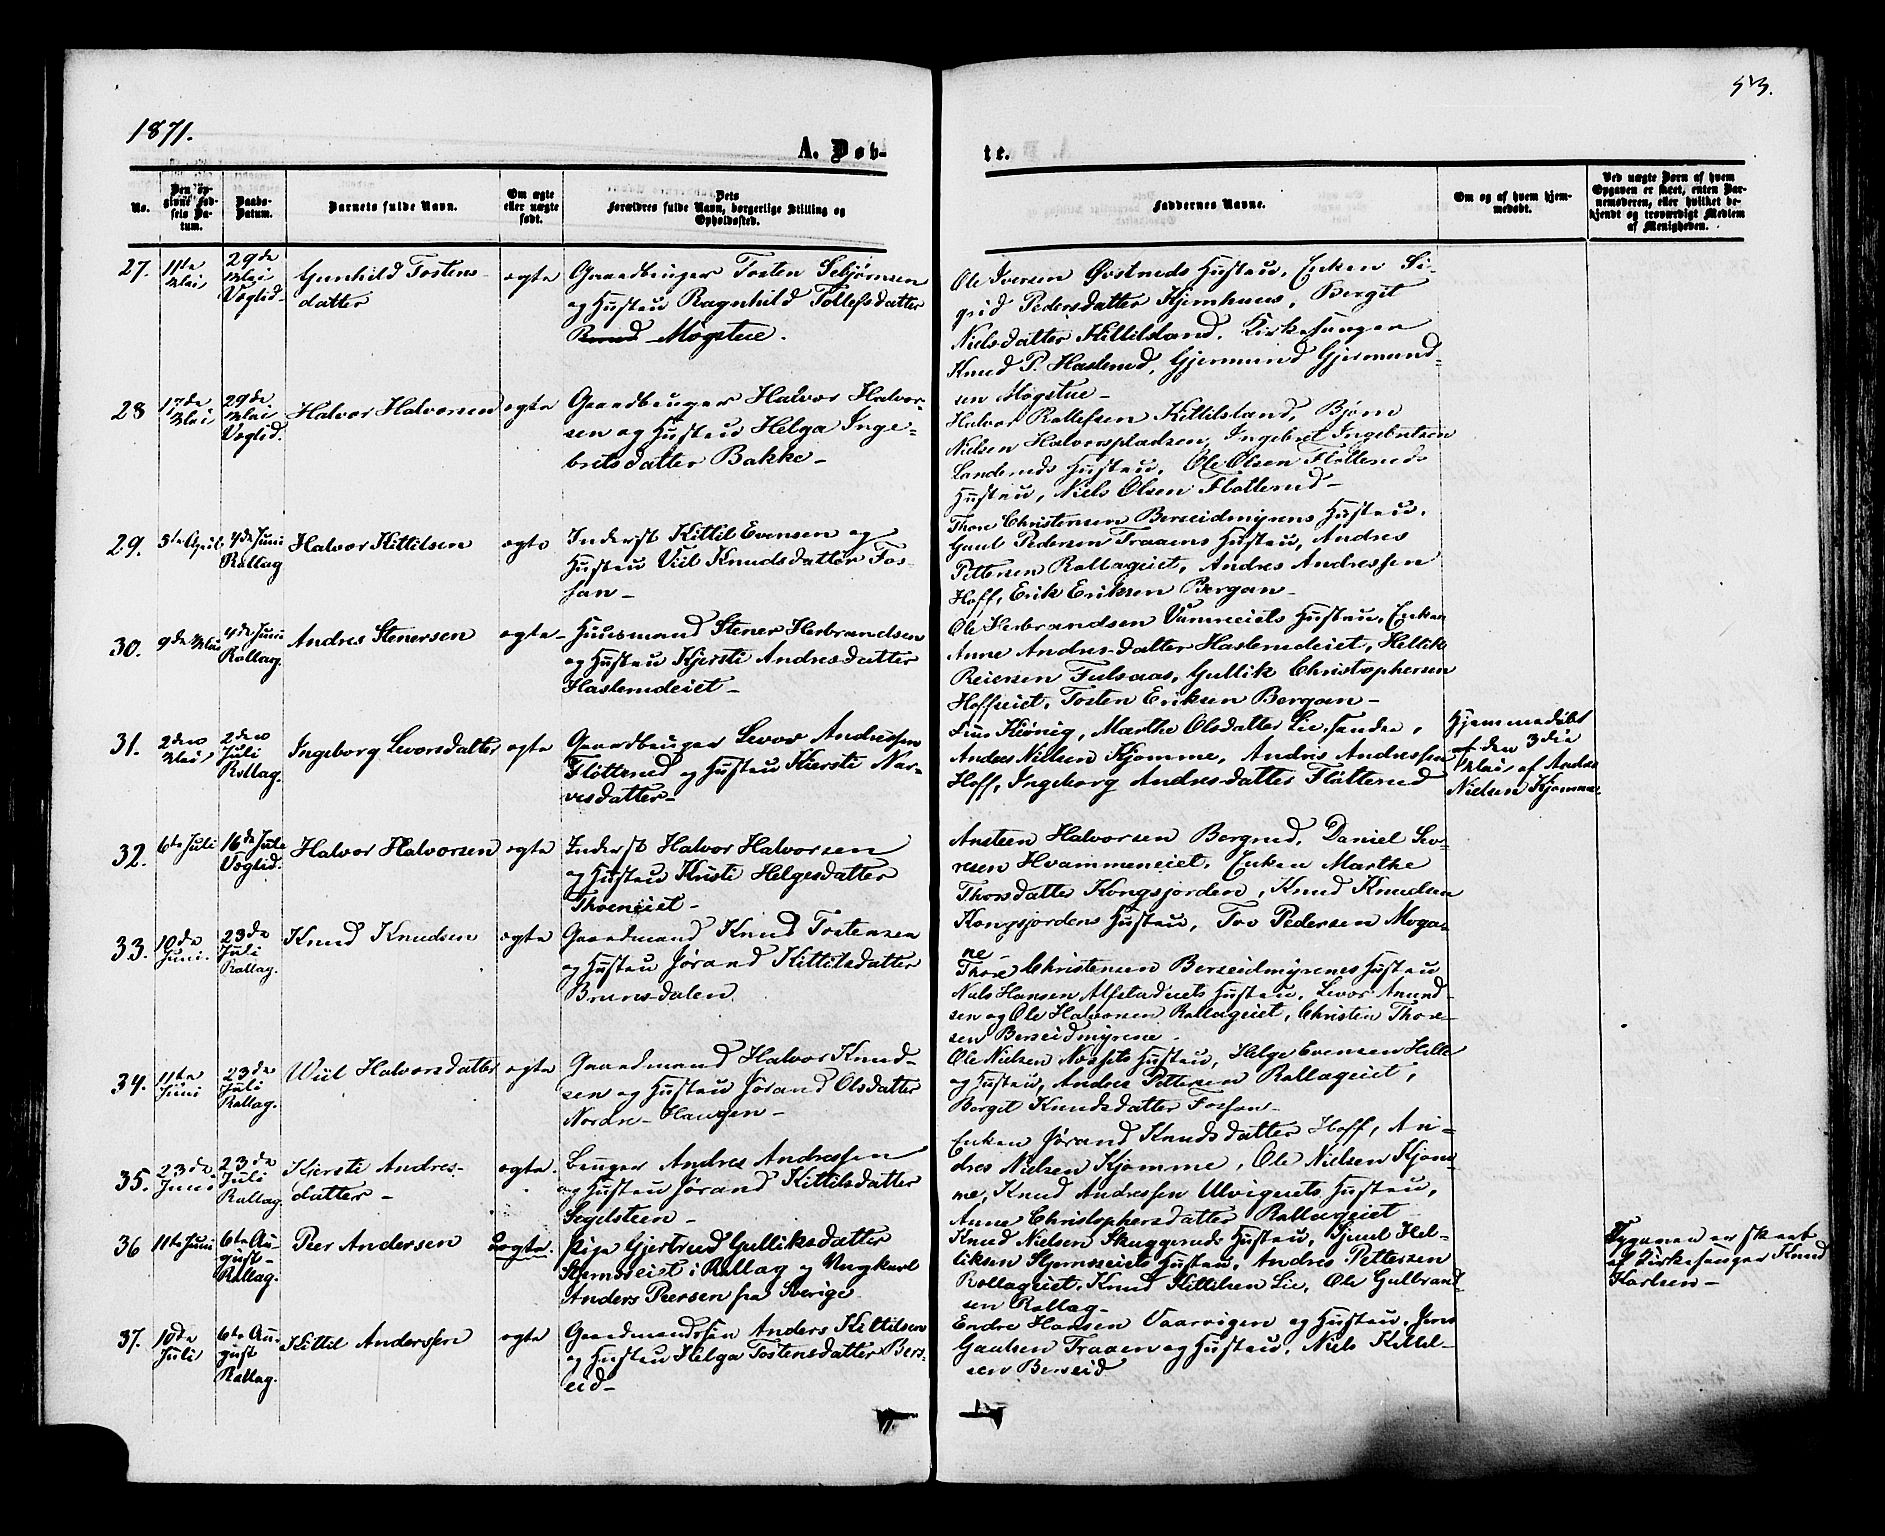 1871.
53.
A. Døb-
te.
No.
Den opgivne Fødsels Datum.
Daabs-Datum.
Barnets fulde Navn.
Om ægte eller uægte født.
Dets Forældres fulde Navn, borgerlige Stilling og Opholdssted.
Faddernes Navne.
Om og af hvem hjemmedøbt.
Ved uægte Børn af hvem Opgaven er skeet, enten Barnemoderen, eller hvilket bekjendt og troværdigt Medlem af Menigheden.
27.
11te Mai
29de Mai Veglid
Gunhild Tostens-
datter
ægte
Gaardbruger Tosten
og Hustru Ragnhild Tollefsdatter
Mogstue.
Ole Iversen Øvstruds Hustru, Enken Si-
grid Pedersdatter Kjemhuus, Bergit
Nielsdatter Kittilsland, Kirkesanger
Knud P. Haslerud, Gjermund Gjermund-
sen Mogstue
28
17de Mai
29de Mai Veglid.
Halvor Halvorsen
ægte
Gaardbruger Halvor Halvor-
sen og Hustru Helga Inge-
britsdatter Bakke
Halvor Rollefsen Kittilsland, Bjørn
Nielsen Halvorspladsen, Ingebret Ingebretsen
Landeruds Hustru, Ole Olsen Fløtteruds
Hustru, Niels Olsen Fløtterud
29.
5te April
4de Juni Rollag
Halvor Kittilsen
ægte
Inderst Kittil Evensen og
Hustru Viil Knudsdatter Fos-
san
Thore Christensen Berseidmyrens Hustru,
Gaut Pedersen Traaens Hustru, Andres
Pettersen Rollageiet, Andres Andressen
Hoff, Erik Eriksen Bergan
30.
9de Mai
4de Juni Rollag
Andres Stenersen
ægte
Huusmand Stener Herbrandsen
og Hustru Kjersti Andresdatter
Haslerudeiet
Ole Herbrandsen Hustru, Enken
Anne Andresdatter Haslerudeiet, Hellik
Reiersen Fulsaas, Gullik Christophersen
Hoffseiet, Tosten Eriksen Bergan
31.
2den Mai
2den Juli Rollag.
Ingeborg Levorsdatter
ægte
Gaardbruger Levor Andressen
Fløtterud og Hustru Kiersti Nar-
vesdatter
Marthe Olsdatter
Andres Nielsen Kjomme, Andris Andressen
Hoff, Ingeborg Andresdatter Fløtterud
Hjemmedøbt
af den 3die
Mai af Andres
Nielsen Kjomme
32.
6te Juli
16de Juli Veglid.
Halvor Halvorsen
ægte
Inderst Halvor Halvorsen
og Hustru Kristi Helgesdatter
Thoeneiet
Ansteen Halvorsen Bergrud, Daniel Sev-
resen Hvammeneiet, Enken Marthe
Thorsdatter Kongsjorden, Knud Knudsen
Kongsjordens Hustru, Tov Pedersen Moga-
ne
33.
10de Juni.
23de Juli Rollag.
Knud Knudsen
ægte
Gaardmand Knud Tostensen
og Hustru Jørand Kittilsdatter
Brunsdalen.
Thore Christensen Berseidmyrenes Hustru
Niels Hansen Alfstadeiets Hustru, Levor Amund-
sen og Ole Halvorsen Rollageiet, Christen Thore-
sen Berseidmyrene.
34.
11te Juni
23de Juli Rollag.
Wiil Halvorsdatter
ægte
Gaardmand Halvor Knud-
sen og Hustru Jørand Olsdatter
Nordre-Haugen
Ole Nielsen Hustru, Helge Evensen Helle
og Hustru, Andres Pettersen Rollageiet,
Bergit Knudsdatter Fossan
35.
23de Juni
23de Juli Rollag
Kiersti Andres-
datter
ægte.
Bruger Andres Andressen
og Hustru Jørand Kittilsdatter
Segelsteen
Enken Jørand Knudsdatter Hoff, An-
dres Nielsen Kjomme, Ole Nielsen Kjom-
me, Knud Andressen Hustru,
Anne Christophersdatter Rollageiet
36
11te Juni
6te August Rollag.
Peer Andersen
uægte.
Pige Gjertrud Gulliksdatter
i Rollag og Ungkarl
Anders Peersen fra Sverige
Knud Nielsen Skuggeruds Hustru, Gjuul Hel-
liksen Hustru, Andres Pettersen
Rollageiet, Knud Kittilsen Lie, Ole Gulbrand-
sen Rollag
Opgaven er skeet
af Kirkesanger Knud
Karlsen
37.
10de Juli
6te August Rollag.
Kittil Anderssen
ægte
Gaardmandssøn Anders Kittilsen
og Hustru Helga Tostensdatter Bers-
eid
Endre Hansen Vaarvigen og Hustru, Jens
Gautsen Traaen og Hustru, Niels Kittil-
sen Berseid